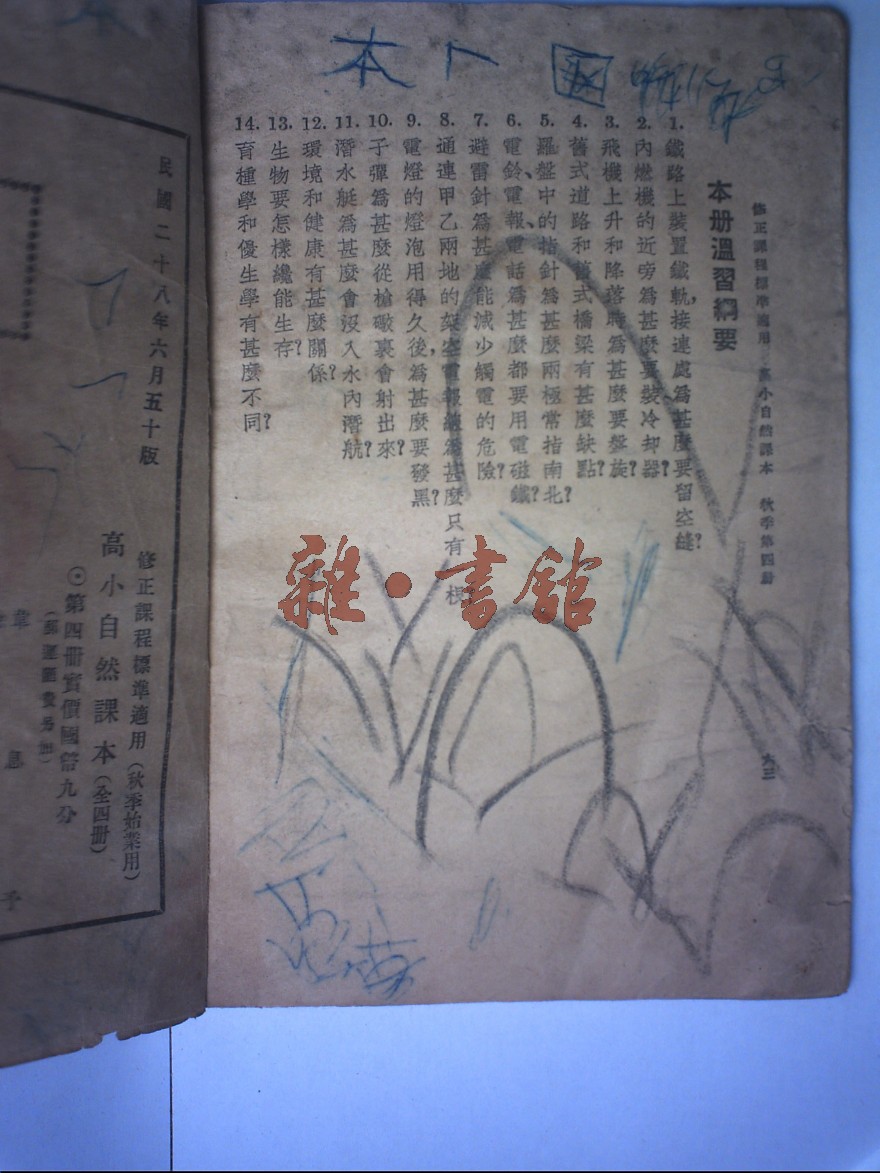 修正課程標準適用 高小自然課本 秋季第四册
六三
本册溫習綱要
1. 鐵路上裝置鐵軌,接連處爲甚麼要留空縫?
2. 內燃機的近旁爲甚麼要裝冷却器?
3. 飛機上升和降落時爲甚麼要盤旋?
4. 舊式道路和舊式橋梁有甚麼缺點?
5. 羅盤中的指針爲甚麼兩極常指南北?
6. 電鈴、電報、電話爲甚麼都要用電磁鐵?
7. 避雷針爲甚麼能減少觸電的危險?
8. 通連甲乙兩地的架空電報線爲甚麼只有
9. 電燈的燈泡用得久後,爲甚麼要發黑?
10. 子彈爲甚麼從槍礮裏會射出來?
11. 潛水艇爲甚麼會沒入水內潛航?
12. 環境和健康有甚麼關係?
13. 生物要怎樣纔能生存?
14. 育種學和優生學有甚麼不同?
本 卜 国
雜·書館
民國二十八年六月五十版
修正課程標準適用(秋季始業用)
高小自然課本(全四册)
⊙第四册實價國幣九分
(郵運匯費另加)
韋
息
予